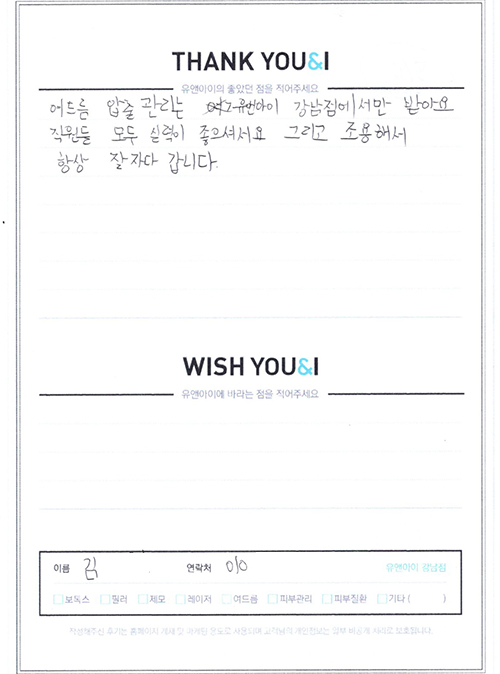 THANK YOU&I
유앤아이의 좋았던 점을 적어주세요
여드름 압출 관리는 유앤아이 강남점에서만 받아요
직원들 모두 실력이 좋으셔서요 그리고 조용해서
항상 잘 자다 갑니다.
WISH YOU&I
유앤아이에 바라는 점을 적어주세요
이름 김 연락처 010 유앤아이 강남점
보톡스 필러 제모 레이저 여드름 피부관리 피부질환 기타 ( )
작성해주신 후기는 홈페이지 게재 및 마케팅 용도로 사용되며 고객님의 개인정보는 일부 비공개 처리로 보호됩니다.